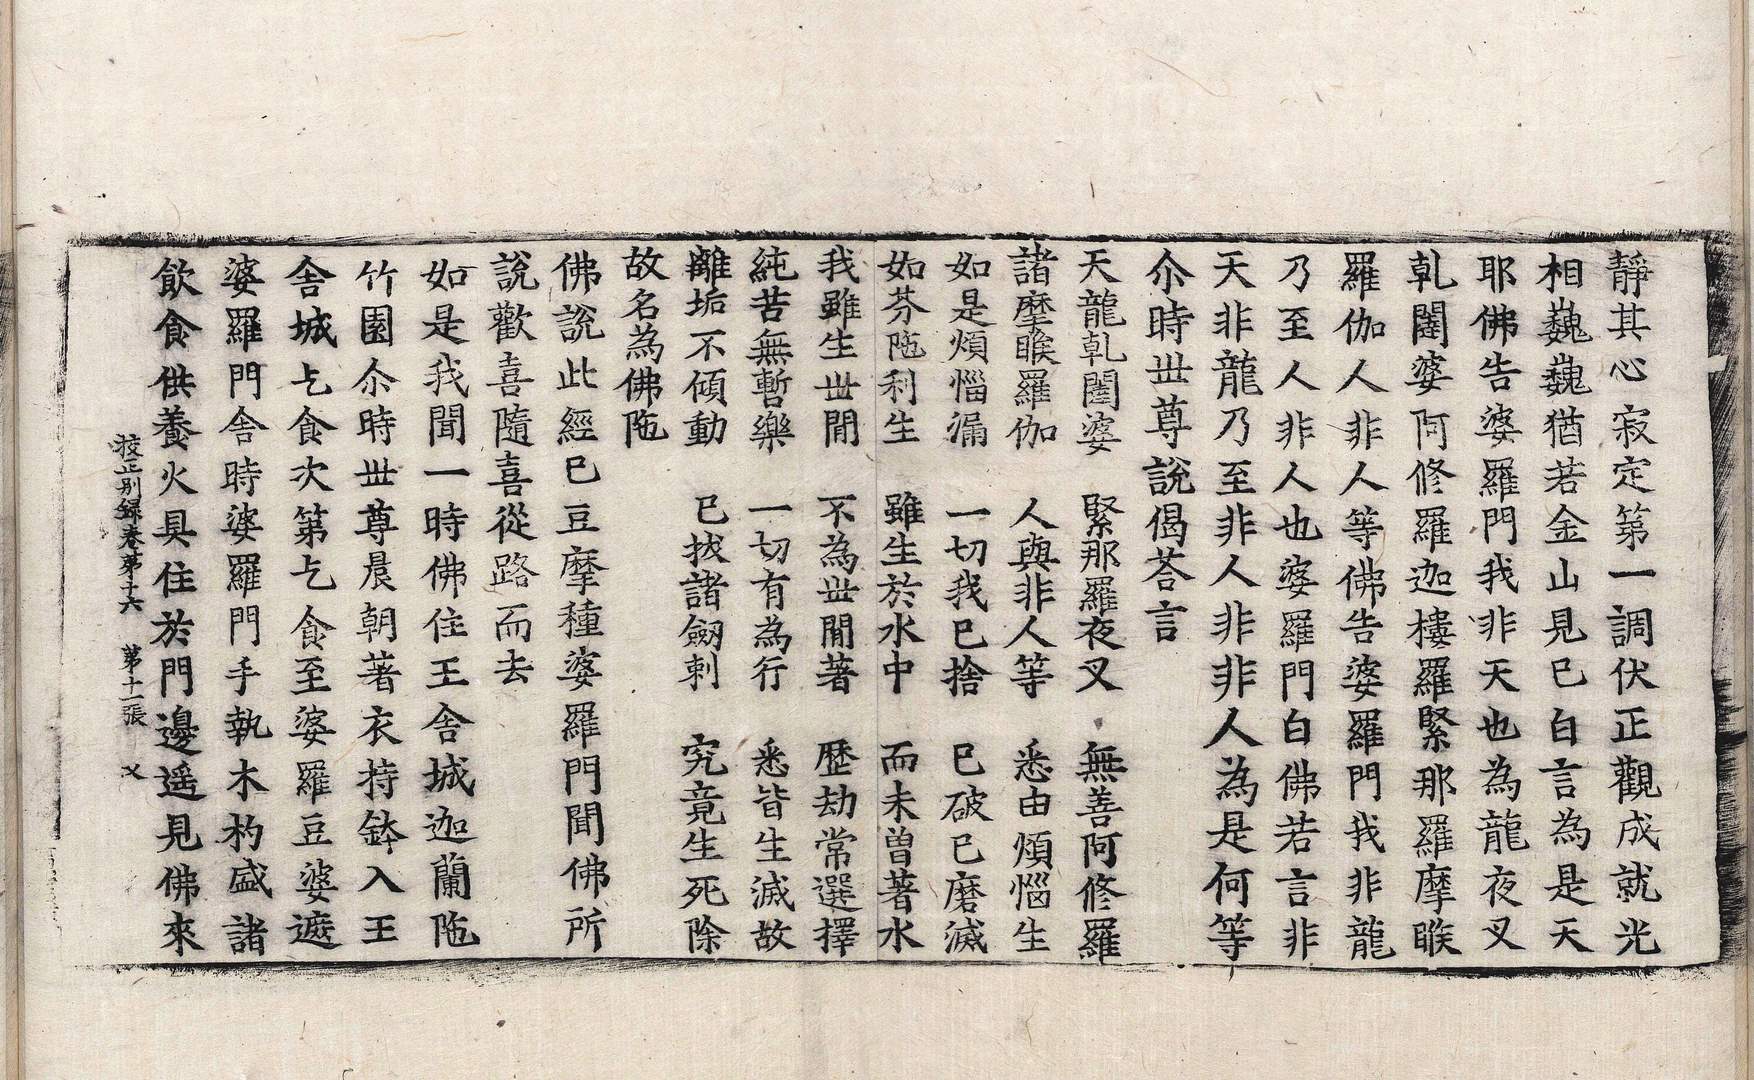 靜其心寂定第一調伏正觀成就光
相巍巍猶若金山見已白言為是天
耶佛告婆羅門我非天也為龍夜叉
乹闥婆阿修羅迦樓羅緊那羅摩睺
羅伽人非人等佛告婆羅門我非龍
乃至人非人也婆羅門白佛若言非
天非龍乃至非人非非人為是何等
尒時世尊說偈荅言
天龍乹闥婆　緊那羅夜叉　無善阿修羅
諸摩睺羅伽　人與非人等　悉由煩惱生
如是煩惱漏　一切我已捨　已破已磨滅
如芬陁利生　雖生於水中　而未曽著水
我雖生世間　不為世間著　歷劫常選擇
純苦無暫樂　一切有為行　悉皆生滅故
離垢不傾動　已拔諸劔刺　究竟生死除
故名為佛陁
佛說此經已豆摩種婆羅門聞佛所
說歡喜隨喜從路而去
如是我聞一時佛住王舎城迦蘭陁
竹園尒時世尊晨朝著衣持鉢入王
舎城乞食次第乞食至婆羅豆婆遮
婆羅門舎時婆羅門手執木杓盛諸
飲食供養火具住於門邊遥見佛來
挍正别録卷第十六　第十一張　㐅